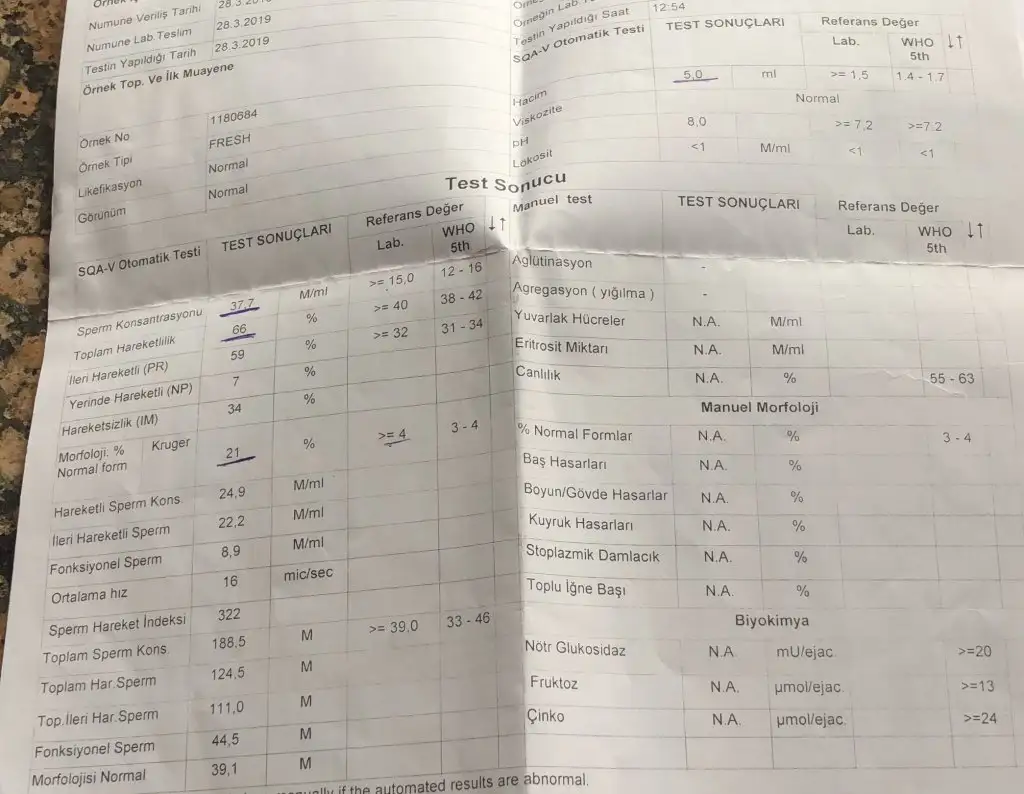 Numune Veriliş Tarihi 28.3.2019
Numune Lab.Teslim 28.3.2019
Testin Yapıldığı Tarih 28.3.2019
Örnek Top. Ve İlk Muayene
Örnek No 1180684
Örnek Tipi FRESH
Likefikasyon Normal
Görünüm Normal
Örneğin Lab
Testin Yapıldığı Saat 12:54
SQA-V Otomatik Testi TEST SONUÇLARI Referans Değer
Lab. WHO 5th ↓↑
Hacim 5,0 ml >= 1,5 1.4 - 1.7
Viskozite Normal
pH 8,0 >= 7,2 >=7.2
Lökosit <1 M/ml <1 <1
Test Sonucu
SQA-V Otomatik Testi TEST SONUÇLARI Referans Değer
Lab. WHO 5th ↓↑
Sperm Konsantrasyonu 37,7 M/ml >= 15,0 12 - 16
Toplam Hareketlilik 66 % >= 40 38 - 42
İleri Hareketli (PR) 59 % >= 32 31 - 34
Yerinde Hareketli (NP) 7 %
Hareketsizlik (IM) 34 %
Morfoloji: % Kruger 21 % >= 4 3 - 4
Normal form
Hareketli Sperm Kons. 24,9 M/ml
İleri Hareketli Sperm 22,2 M/ml
Fonksiyonel Sperm 8,9 M/ml
Ortalama hız 16 mic/sec
Sperm Hareket İndeksi 322
Toplam Sperm Kons. 188,5 M >= 39,0 33 - 46
Toplam Har.Sperm 124,5 M
Top.İleri Har.Sperm 111,0 M
Fonksiyonel Sperm 44,5 M
Morfolojisi Normal 39,1 M
Manuel test TEST SONUÇLARI Referans Değer
Lab. WHO 5th ↓↑
Aglütinasyon -
Agregasyon ( yığılma ) -
Yuvarlak Hücreler N.A. M/ml
Eritrosit Miktarı N.A. M/ml
Canlılık N.A. % 55 - 63
Manuel Morfoloji
% Normal Formlar N.A. % 3 - 4
Baş Hasarları N.A. %
Boyun/Gövde Hasarlar N.A. %
Kuyruk Hasarları N.A. %
Stoplazmik Damlacık N.A. %
Toplu İğne Başı N.A. %
Biyokimya
Nötr Glukosidaz N.A. mU/ejac. >=20
Fruktoz N.A. µmol/ejac. >=13
Çinko N.A. µmol/ejac. >=24
if the automated results are abnormal.